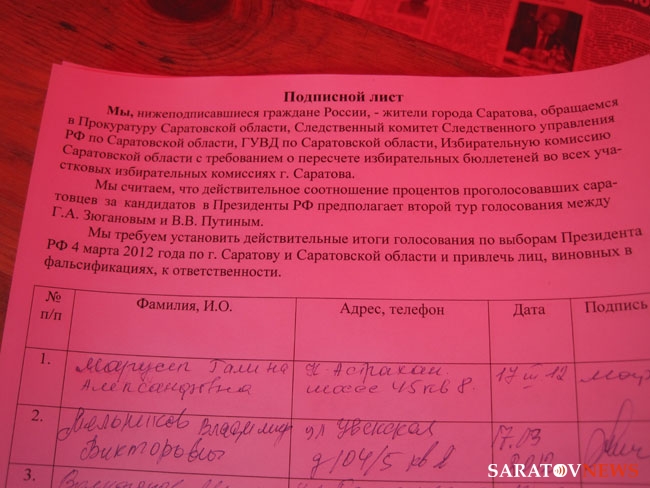 Подписной лист
Мы, нижеподписавшиеся граждане России, - жители города Саратова, обращаемся
в Прокуратуру Саратовской области, Следственный комитет Следственного управления
РФ по Саратовской области, ГУВД по Саратовской области, Избирательную комиссию
Саратовской области с требованием о пересчете избирательных бюллетеней во всех уча-
стковых избирательных комиссиях г. Саратова.
Мы считаем, что действительное соотношение процентов проголосовавших сара-
товцев за кандидатов в Президенты РФ предполагает второй тур голосования между
Г.А. Зюгановым и В.В. Путиным.
Мы требуем установить действительные итоги голосования по выборам Президента
РФ 4 марта 2012 года по г. Саратову и Саратовской области и привлечь лиц, виновных в
фальсификациях, к ответственности.
№ п/п Фамилия, И.О. Адрес, телефон Дата Подпись
1. Галина Александровна шоссе 45 кв 8. 17 III 12
2. Мельников Владимир Викторович ул Увекская д 104/5 кв 17.03
3.
SARATOVNEWS